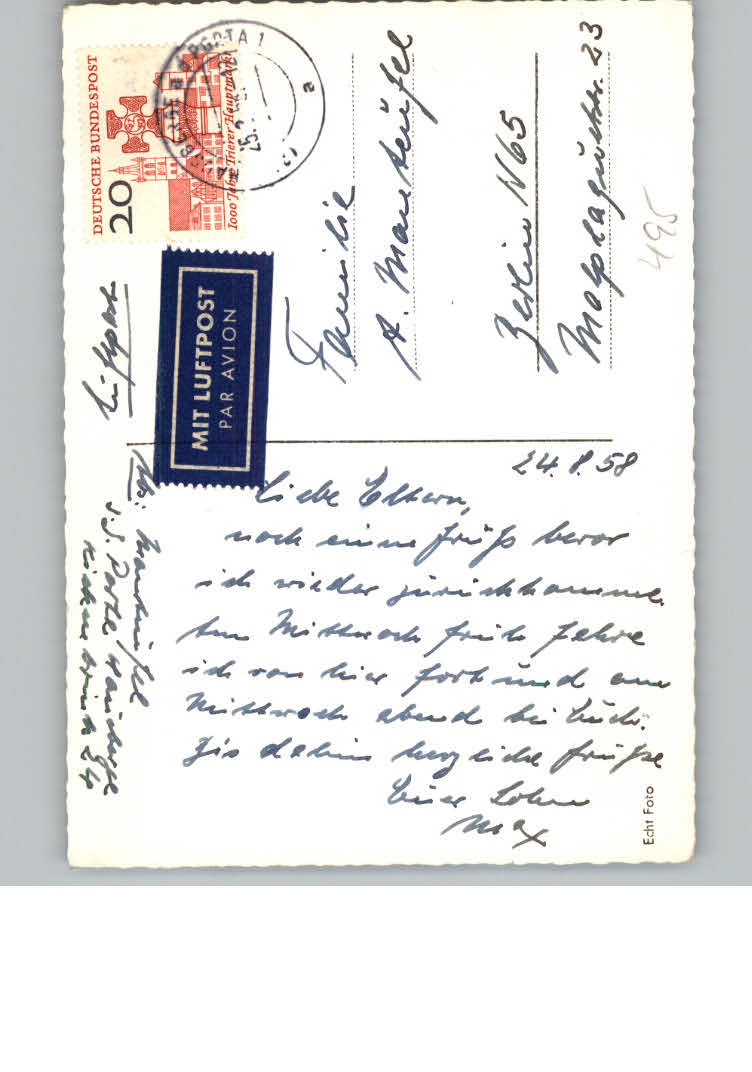 DEUTSCHE BUNDESPOST
20
1000 Jahre Trierer Hauptmarkt
PORTA 1
a
Luftpost
MIT LUFTPOST
PAR AVION
Familie
A. Manteufel
Berlin N 65
Malplaquetstr. 23
495
Abs: Manteufel
Porta
24
24.8.58
Liebe Eltern,
noch einne Grüß bevor
ich wieder zurückkomme.
Am Mittwoch früh fahre
ich von hier fort und am
Mittwoch abend bei Euch.
Bis dahin herzliche Grüße
Euer Sohn
Max
Echt Foto